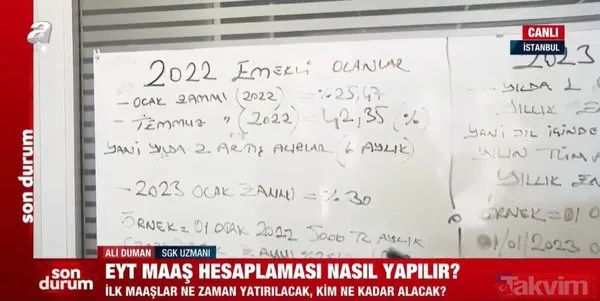 a
CANLI
İSTANBUL
2022 EMEKLİ OLANLAR
– OCAK ZAMMI (2022) = %25,47
– TEMMUZ " (2022) = 42,35 (%)
YANİ YILDA 2 ARTIŞ ALIRLAR (6 AYLIK)
– 2023 OCAK ZAMMI = %30
ÖRNEK = 01 OCAK 2022 5000 TL AYLIK
2023
– YILDA 1
YILLIK
YANİ YIL İÇİNDE
YILIN TÜM
YILLIK
ÖRNEK = 01
01/01/2023
son durum
ALİ DUMAN
SGK UZMANI
son durum
EYT MAAŞ HESAPLAMASI NASIL YAPILIR?
İLK MAAŞLAR NE ZAMAN YATIRILACAK, KİM NE KADAR ALACAK?
Takvim